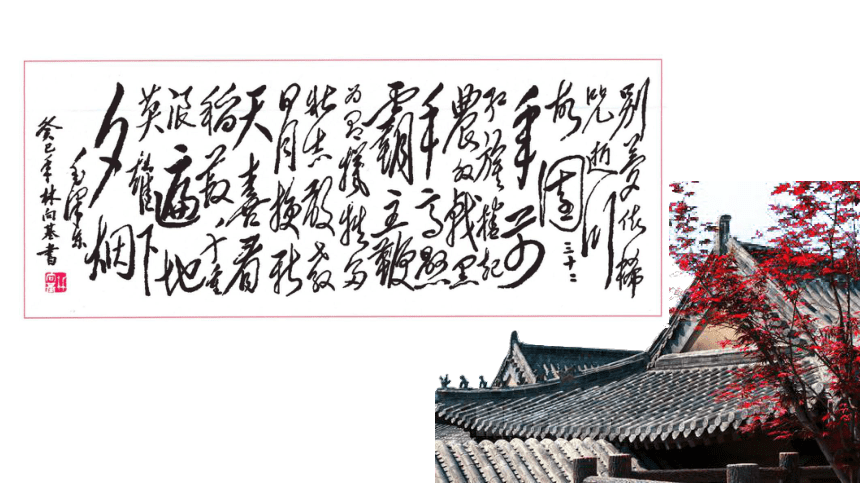 别夢依稀
咒逝川
故園三十二
年前
红旗捲起
農奴戟黑
手高懸
霸主鞭
为有犧牲多
壮志敢教
日月换新
天喜看
稻菽千重
浪遍地
英雄下
夕烟
毛泽东
癸巳年林向書